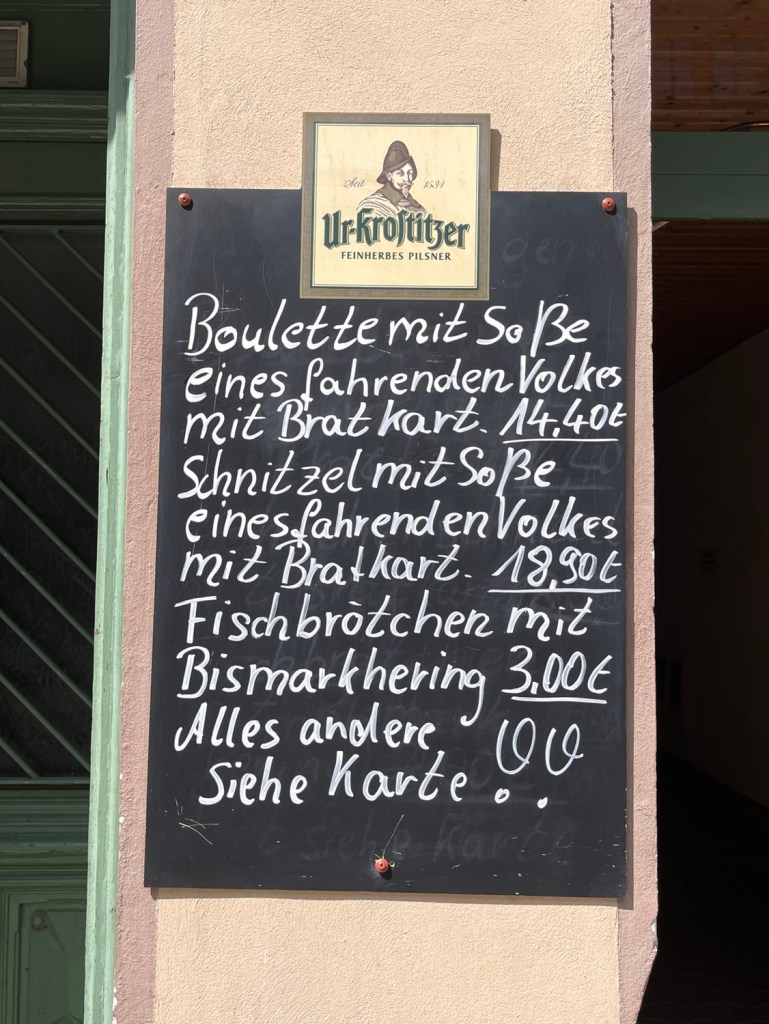 Seit 1534
Ur-Krostitzer
FEINHERBES PILSNER
Boulette mit Soße
eines fahrenden Volkes
mit Bratkart. 14,40€
Schnitzel mit Soße
eines fahrenden Volkes
mit Bratkart. 18,90€
Fischbrötchen mit
Bismarkhering 3,00€
Alles andere
siehe Karte !!